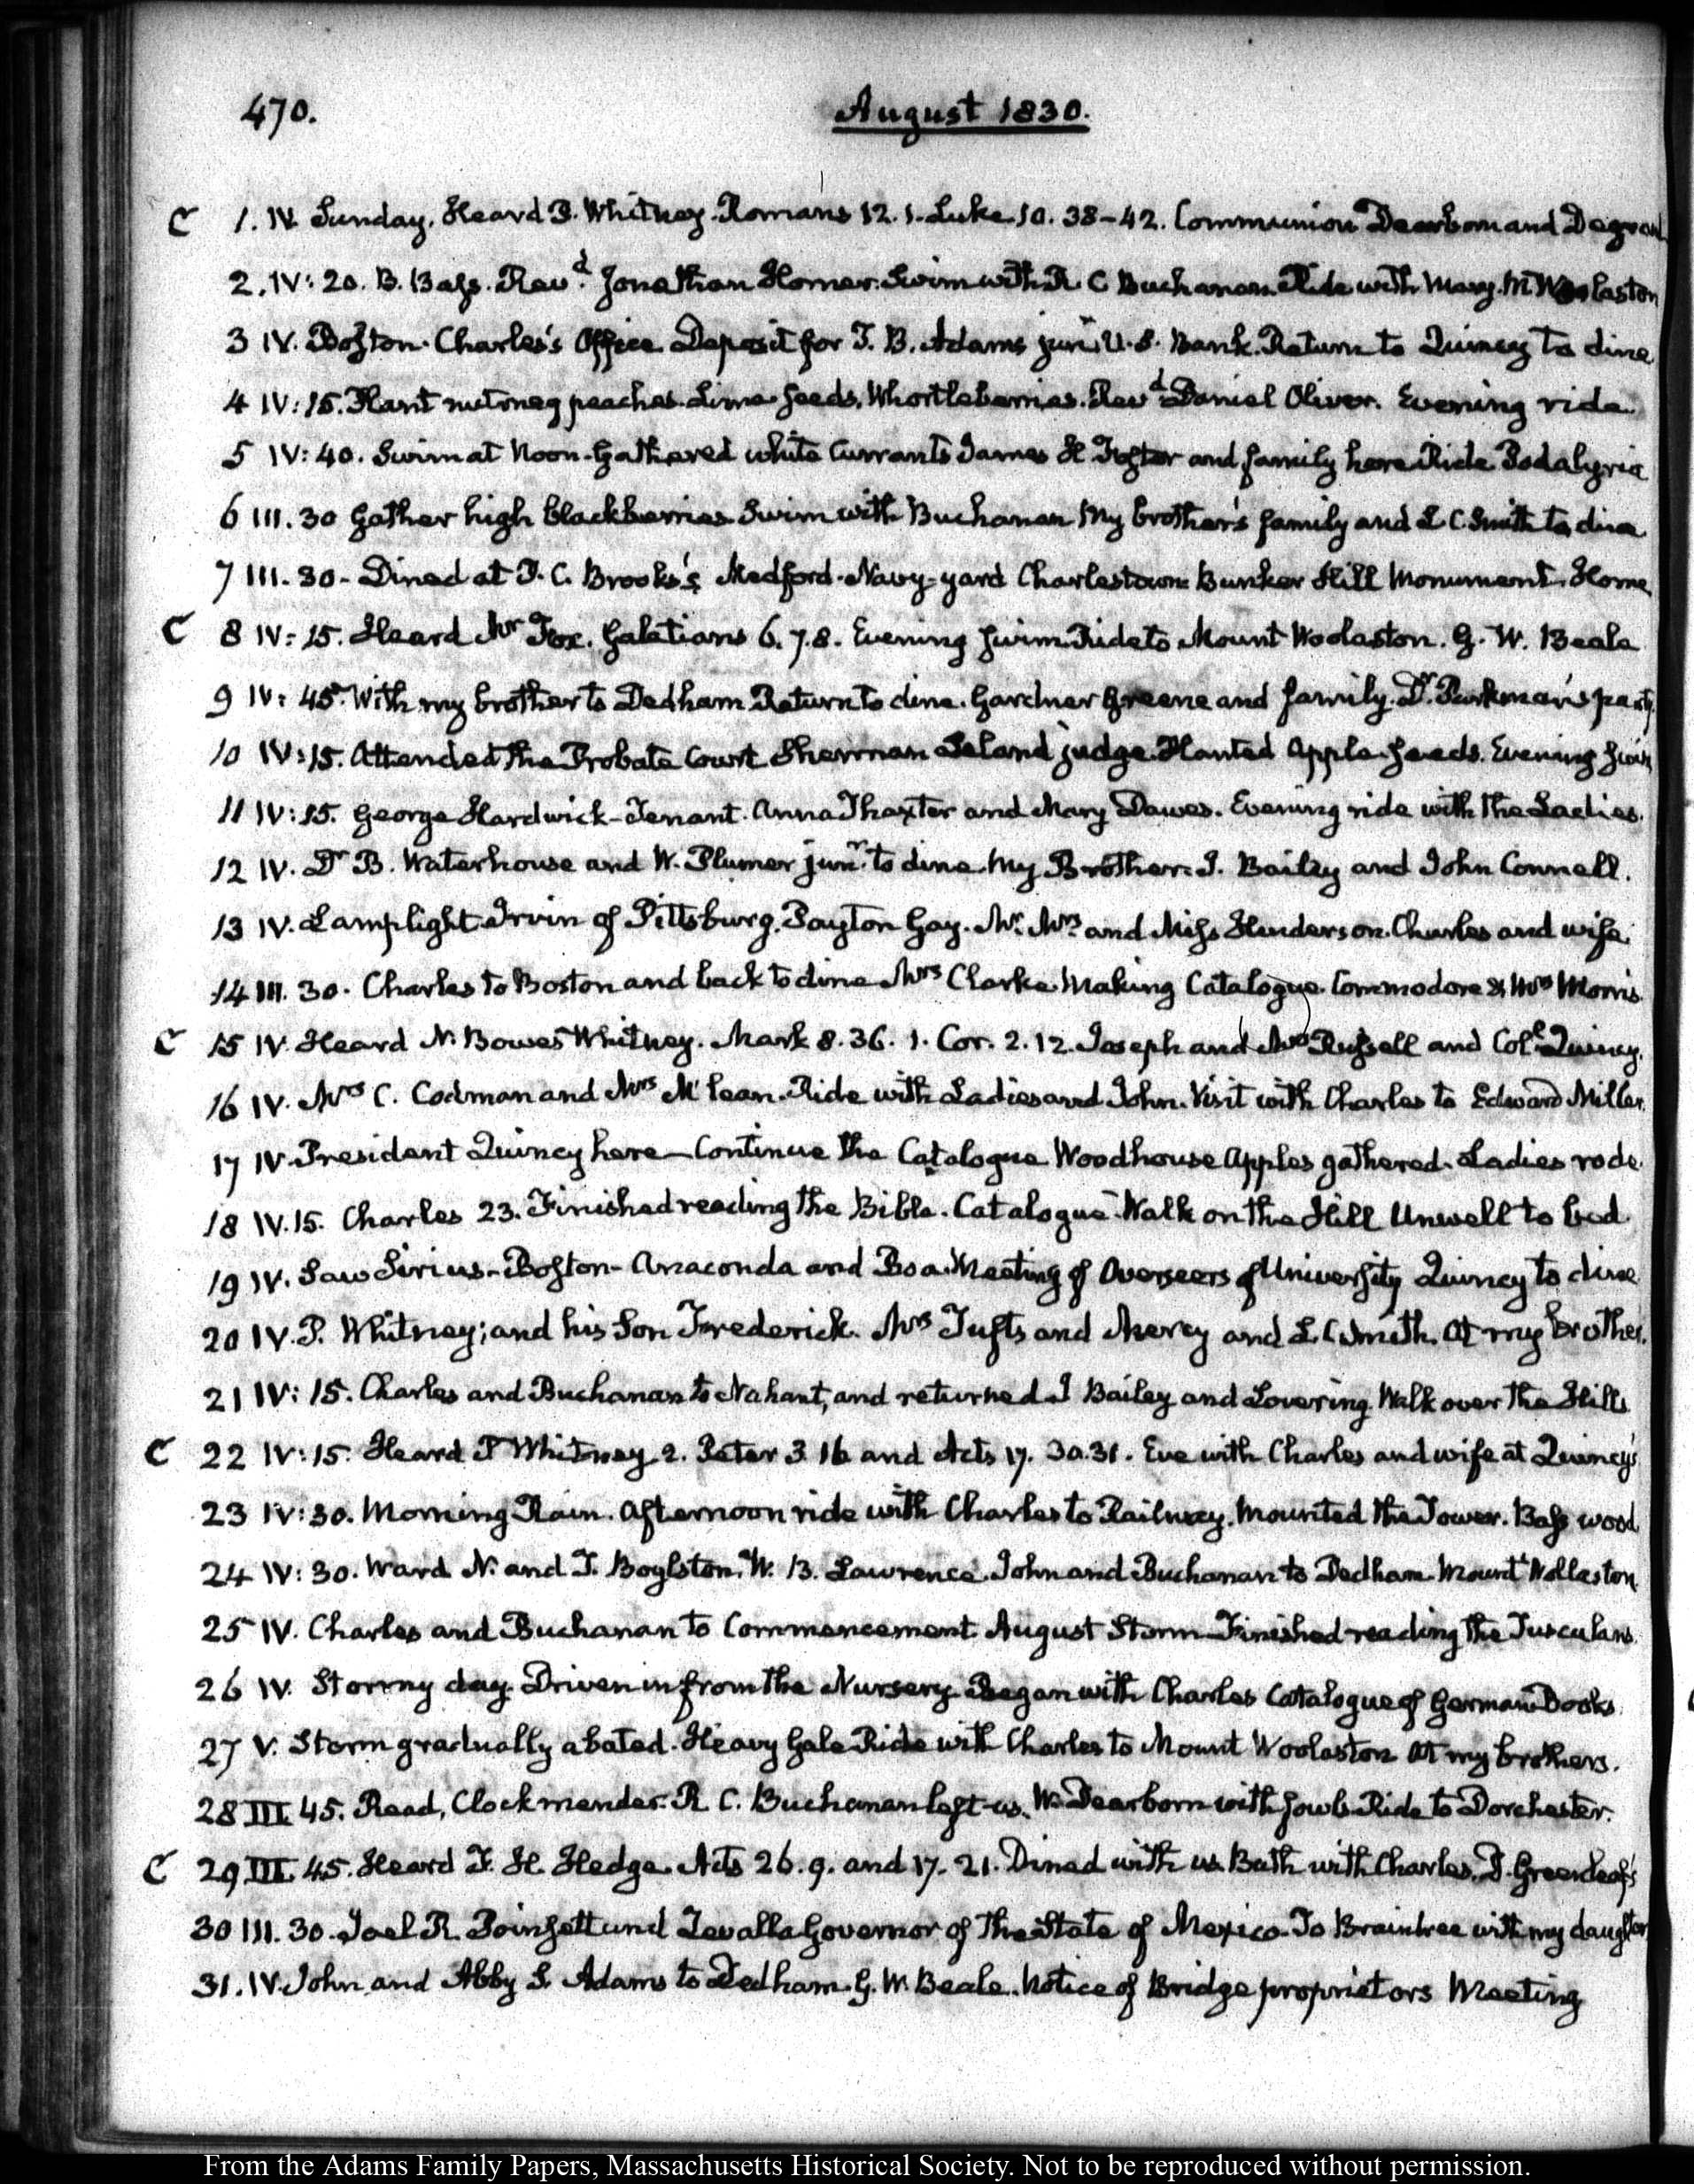 470.
August 1830.
C 1. IV. Sunday. Heard P. Whitney. Romans 12. 1. Luke 10. 38-42. Communion Dearborn and Degrand
2. IV: 20. B. Bass. Revd. Jonathan Homer. Swim with R. C Buchanan. Ride with Mary. Mt Woolaston
3 IV. Boston. Charles's Office Deposit for T. B. Adams junr. U.S. Bank. Return to Quincy to dine
4 IV: 15. Plant nutmeg peaches. Lime seeds. Whortleberries. Revd Daniel Oliver. Evening ride
5 IV: 40. Swim at Noon. Gathered white Currants James H Foster and family here Ride Podalyria
6 III. 30 Gather high blackberries Swim with Buchanan My brother's family and L C Smith to dine
7 III. 30 - Dined at P. C. Brooks's Medford. Navy-yard Charlestown Bunker Hill Monument. Home
C 8 IV: 15. Heard Mr Fox. Galatians 6. 7. 8. Evening swim Ride to Mount Woolaston. G. W. Beale
9 IV: 45. With my brother to Dedham Return to dine. Gardner Greene and family. Dr. Parkman's party
10 IV: 15. Attended the Probate Court Sherman Leland judge. Planted Apple-seeds. Evening swim
11 IV: 15. George Hardwick - Tenant. Anna Thaxter and Mary Dawes. Evening ride with the Ladies.
12 IV. Dr B. Waterhouse and W. Plumer junr. to dine. My Brother. J. Bailey and John Connell.
13 IV. Lamplight Irvin of Pittsburg. Payton Gay. Mr. Mrs and Miss Henderson. Charles and wife
14 III. 30. Charles to Boston and back to dine Mrs Clarke. Making Catalogue. Commodore & Mrs Morris
C 15 IV. Heard N. Bowes Whitney. Mark 8. 36. 1. Cor. 2. 12. Joseph and Mrs Russell and Coll Quincy.
16 IV. Mrs C. Codman and Mrs McLean. Ride with Ladies and John. Visit with Charles to Edward Miller
17 IV. President Quincy here - Continue the Catalogue Woodhouse Apples gathered. Ladies rode
18 IV. 15. Charles 23. Finished reading the Bible. Catalogue - Walk on the Hill Unwell to bed
19 IV. Saw Sirius - Boston - Anaconda and Boa. Meeting of Overseers of University Quincy to dine
20 IV. P. Whitney; and his Son Frederick. Mrs Tufts and Mercy and L. C Smith. At my brother.
21 IV: 15. Charles and Buchanan to Nahant, and returned J Bailey and Lovering. Walk over the Hills
C 22 IV: 15. Heard P Whitney 2. Peter 3 16 and Acts 17. 30. 31. Eve with Charles and wife at Quincy's
23 IV: 30. Morning Rain. Afternoon ride with Charles to Railway. Mounted the Tower. Bass wood
24 IV: 30. Ward N. and T. Boylston. W. B. Lawrence. John and Buchanan to Dedham. Mount Wollaston
25 IV. Charles and Buchanan to Commencement. August Storm - Finished reading the Tusculans
26 IV. Stormy day. Driven in from the Nursery Began with Charles Catalogue of German Books
27 V. Storm gradually abated. Heavy Gale Ride with Charles to Mount Woolaston At my brothers.
28 III. 45. Read, Clockmender. R. C. Buchanan left us. W. Dearborn with fowls Ride to Dorchester.
C 29 III. 45. Heard F. H. Hedge. Acts 26. 9. and 17. 21. Dined with us. Bath with Charles. D. Greenleaf's
30 III. 30. Joel R. Poinsett and Zavalla Governor of the State of Mexico. To Braintree with my daughter
31. IV. John and Abby S. Adams to Dedham. G. W. Beale. Notice of Bridge proprietors Meeting
From the Adams Family Papers, Massachusetts Historical Society. Not to be reproduced without permission.